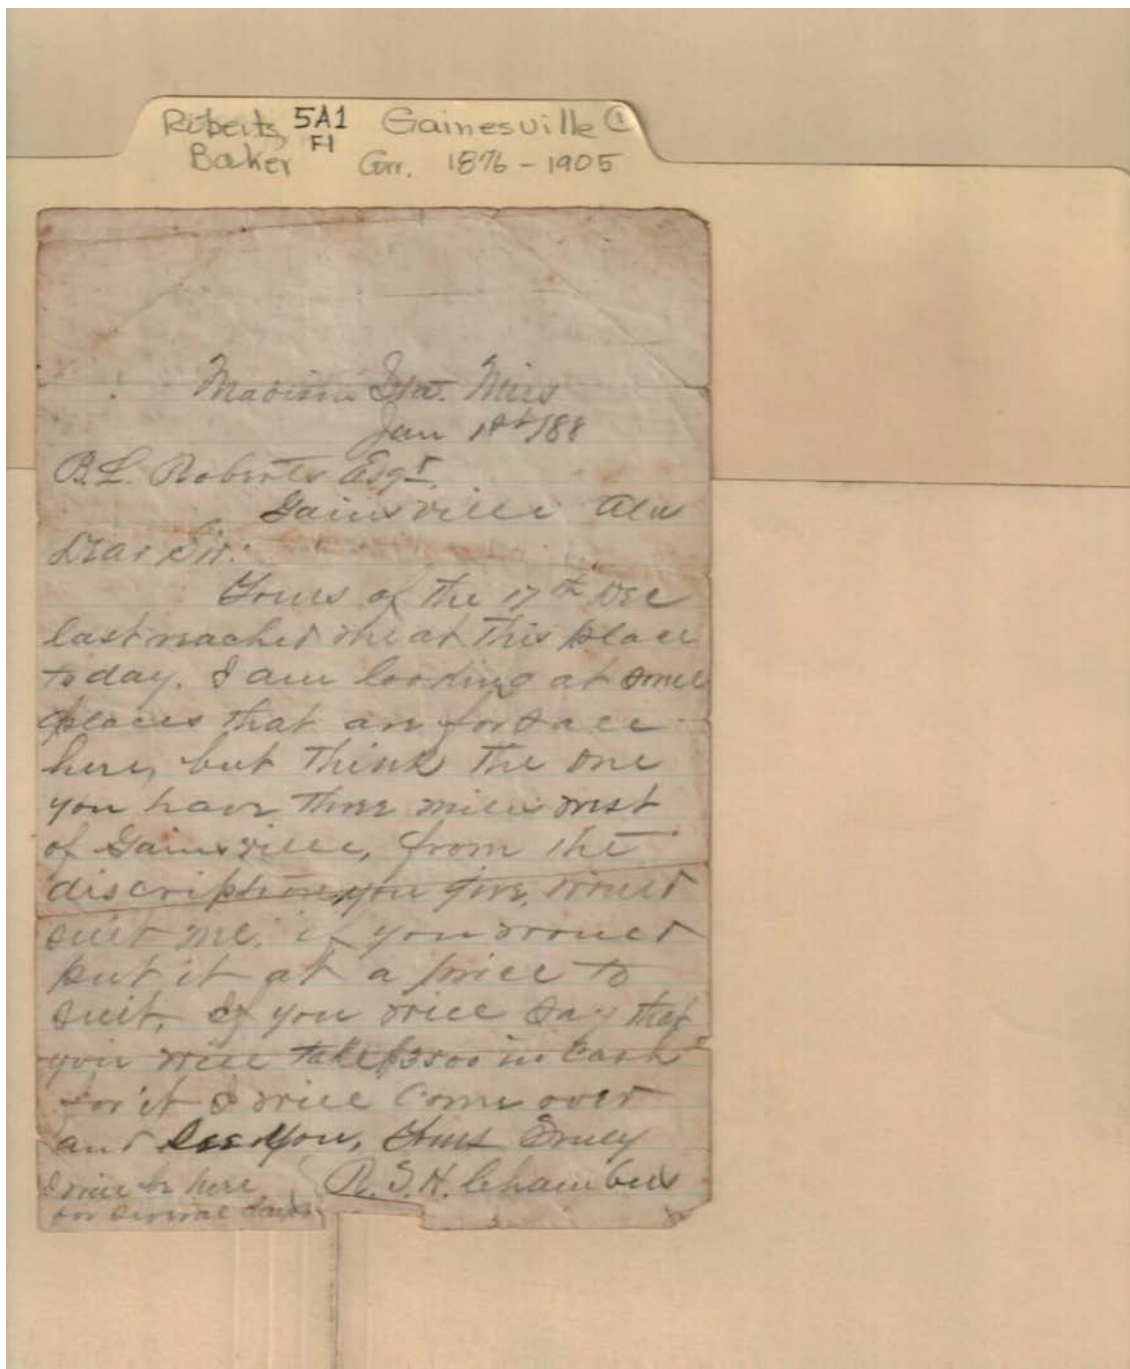 Roberts, 5A1 Gainesville ①
Baker F1 Corr. 1876-1905
Madison Sta. Miss
Jan 1st /88
B.L. Roberts Esqr.
Gainsville Ala
Dear Sir:
Yours of the 17th Dec
last reached me at this place
today. I am looking at some
places that are for sale
here, but think the one
you have three miles west
of Gainsville, from the
discription you give, would
suit me, if you would
put it at a price to
suit. If you will say that
you will take $3500 in Cash
for it I will Come over
and See You, Yours Truly
I will be here R. S. H. Chambers
for several days